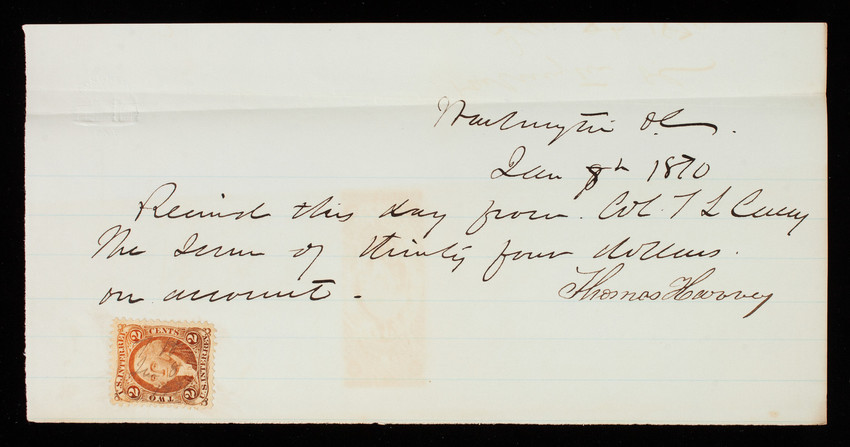 Washington DC.
Jan 8th 1870
Received this day from Col. T L Casey
the sum of thirty four dollars.
on account.
Thomas Harvey
U.S. INTER. REV.
2 CENTS 2
2 TWO 2